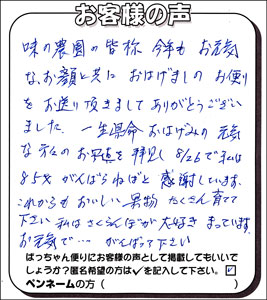 お客様の声
味の農園の皆称 今年も お元気
な、お顔と共に おはげましの お便り
を お送り頂きまして ありがとうござい
ました. 一生県命 おはげみの 元気
な 方々の お写真を 拝見し 8/26で私は
85才 がんばらねばと 感謝しています.
これからも おいしい 果物 たくさん 育てて
下さい 私は さくらんぼが 大好き まっています.
お元気で… がんばって下さい
ばっちゃん便りにお客様の声として掲載してもいいで
しょうか？匿名希望の方は✓を記入して下さい。☑
ペンネームの方（　　　　　　　　）